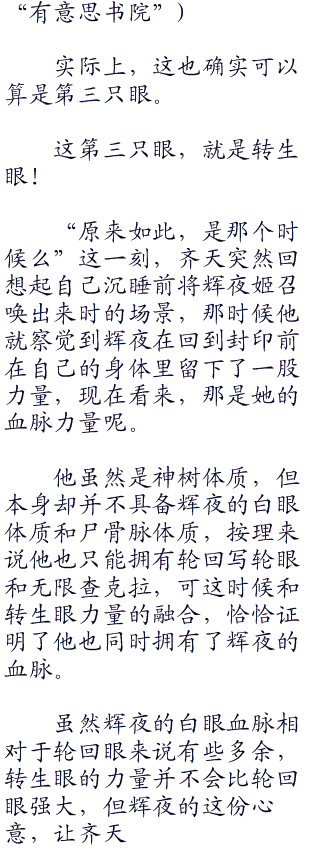 “有意思书院”)
实际上，这也确实可以
算是第三只眼。
这第三只眼，就是转生
眼！
“原来如此，是那个时
候么”这一刻，齐天突然回
想起自己沉睡前将辉夜姬召
唤出来时的场景，那时候他
就察觉到辉夜在回到封印前
在自己的身体里留下了一股
力量，现在看来，那是她的
血脉力量呢。
他虽然是神树体质，但
本身却并不具备辉夜的白眼
体质和尸骨脉体质，按理来
说他也只能拥有轮回写轮眼
和无限查克拉，可这时候和
转生眼力量的融合，恰恰证
明了他也同时拥有了辉夜的
血脉。
虽然辉夜的白眼血脉相
对于轮回眼来说有些多余，
转生眼的力量并不会比轮回
眼强大，但辉夜的这份心
意，让齐天